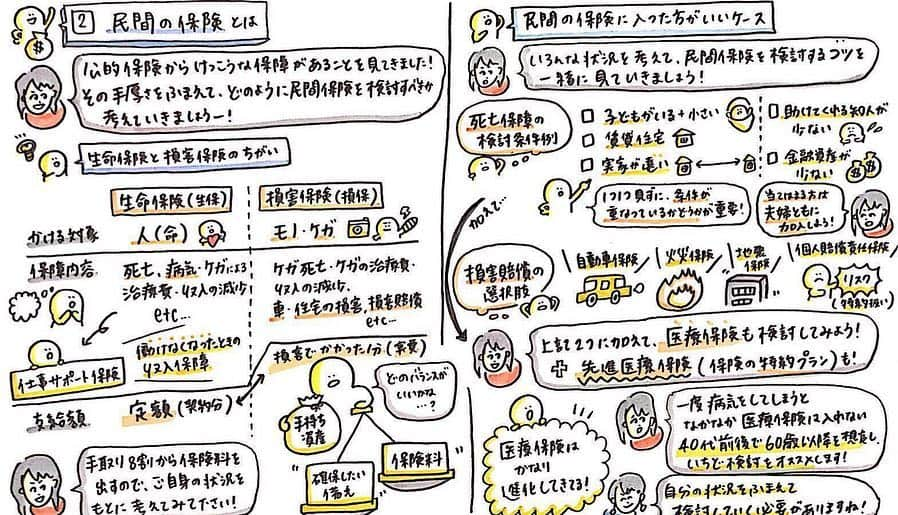 2 民間の保険とは
公的保険からけっこうな保障があることを見てきました!
その手厚さをふまえて、どのように民間保険を検討すべきか
考えていきましょうー!
生命保険と損害保険のちがい
生命保険(生保)
損害保険(損保)
かける対象
人(命)
モノ・ケガ
保障内容
死亡、病気・ケガによる
治療費・収入の減少
etc...
ケガ死亡・ケガの治療費・
収入の減少、
車・住宅の損害、損害賠償
etc...
働けなくなったときの
収入保障
仕事サポート保険
支給額
定額(契約分)
損害でかかった分(実費)
どのバランスが
いいかな
…?
手持ち
資産
確保したい
備え
保険料
手取り8割から保険料を
出すので、ご自身の状況を
もとに考えてみてださい!
民間の保険に入った方がいいケース
いろんな状況を考えて、民間保険を検討するコツを
一緒に見ていきましょう!
死亡保障の
検討条件例
□ 子どもがいる+小さい
□ 賃貸住宅
□ 実家が遠い
□ 助けてくれる知人が
少ない
□ 金融資産が
少ない
1つ1つ見ずに、条件が
重なっているかどうかが重要!
当てはまる方は
夫婦ともに
加入しよう!
加えて
損害賠償の
選択肢
自動車保険
火災保険
地震
保険
個人賠償責任保険
リスク
(特約扱い)
上記2つに加えて、医療保険も検討してみよう!
+ 先進医療保険(保険の特約プラン)も!
医療保険は
かなり
進化してきてる!
一度病気をしてしまうと
なかなか医療保険は入れない
40代前後で60歳以降を想定し、
いちど検討をオススメします!
自分の状況をふまえて
検討していく必要がありますね!